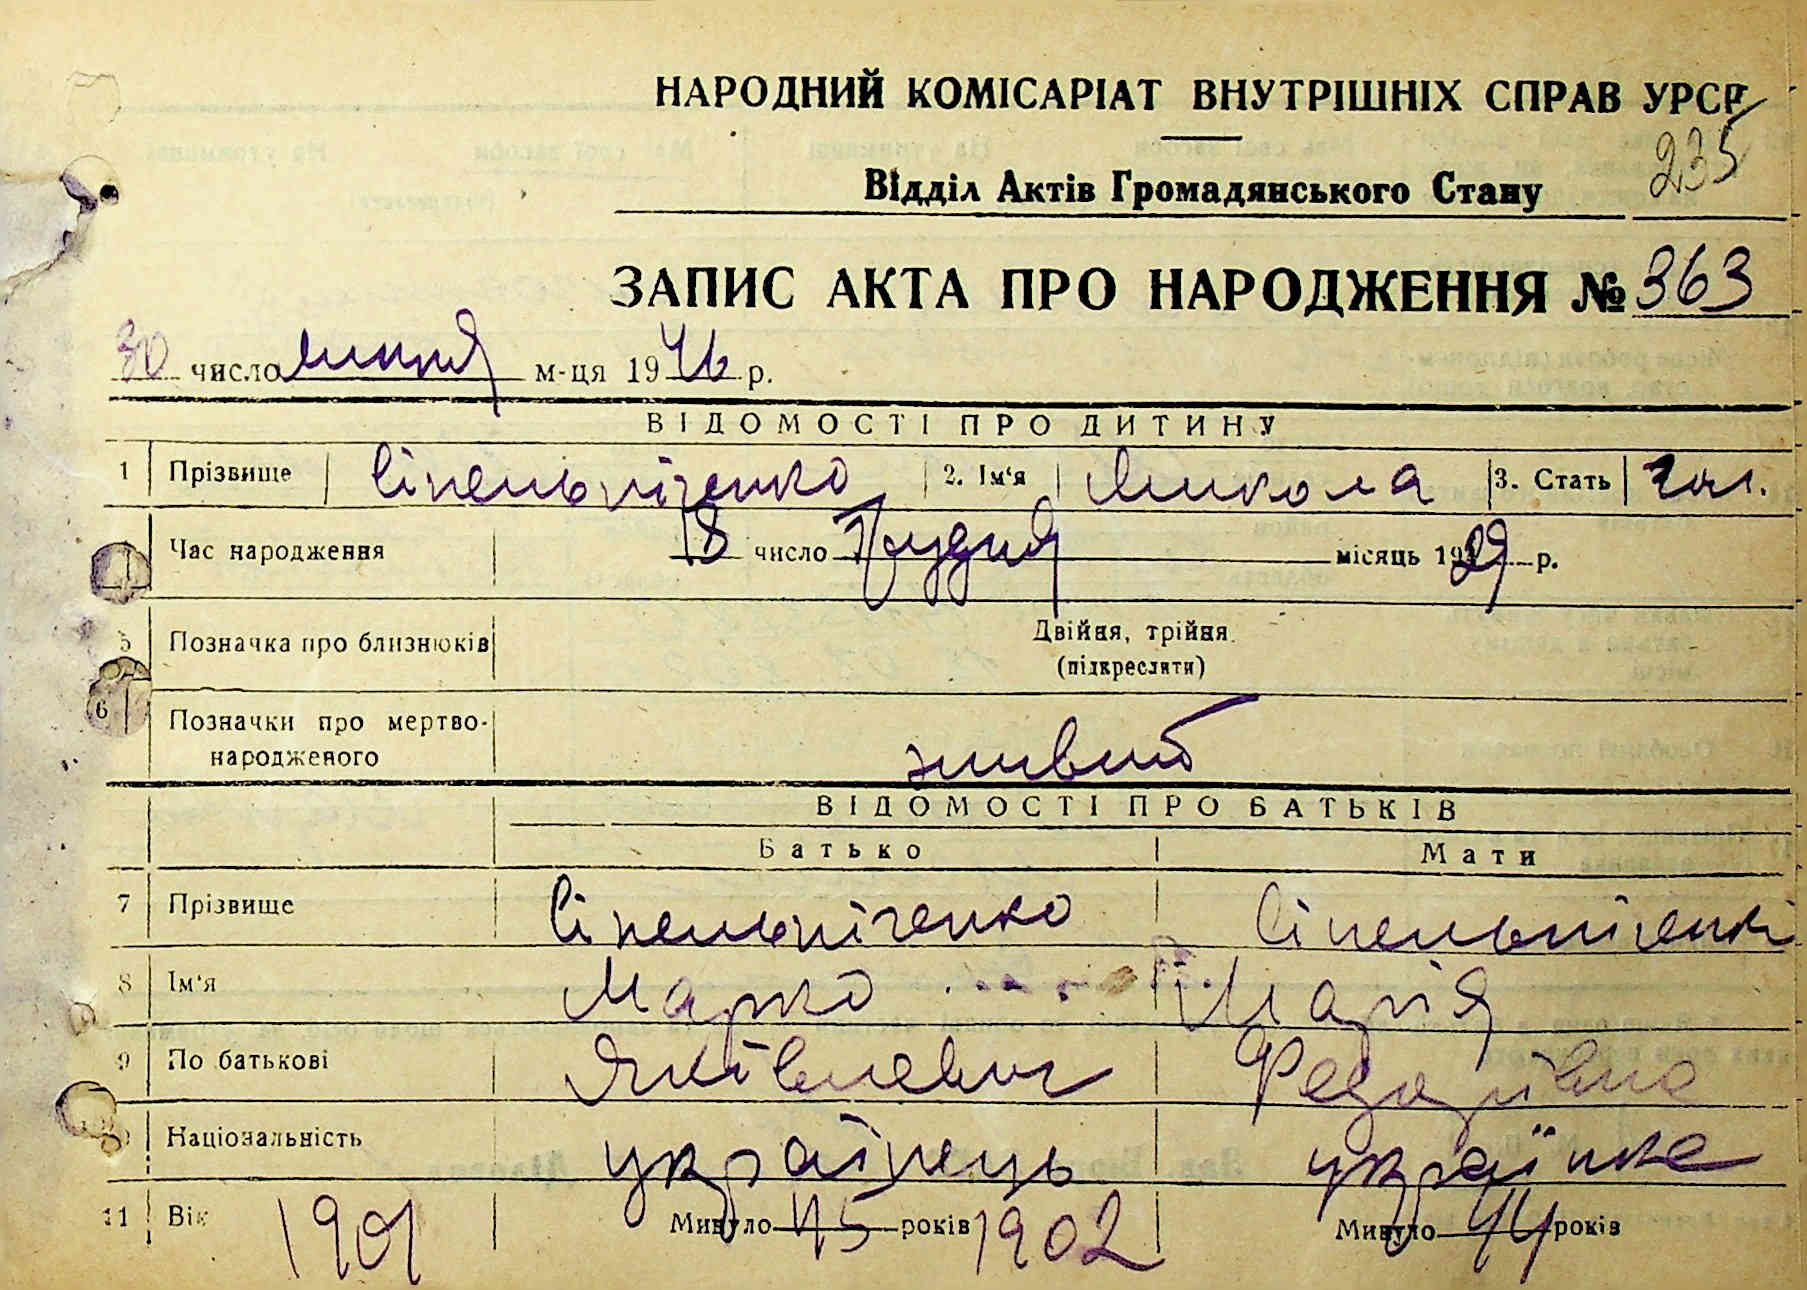 НАРОДНИЙ КОМІСАРІАТ ВНУТРІШНІХ СПРАВ УРСР
235
Відділ Актів Громадянського Стану
ЗАПИС АКТА ПРО НАРОДЖЕННЯ № 363
30 число липня м-ця 1946 р.
ВІДОМОСТІ ПРО ДИТИНУ
1 Прізвище Сінельніченко 2. Ім'я Микола 3. Стать чол.
Час народження 18 число Грудня місяць 1929 р.
5 Позначка про близнюків Двійня, трійня
(підкреслити)
6 Позначки про мертво-
народженого живий
ВІДОМОСТІ ПРО БАТЬКІВ
Батько Мати
7 Прізвище Сінельніченко Сінельніченк
8 Ім'я Марко Марія
9 По батькові Яківлевич Федорівна
Національність українець українка
11 Вік 1901 Минуло 45 років 1902 Минуло 44 років